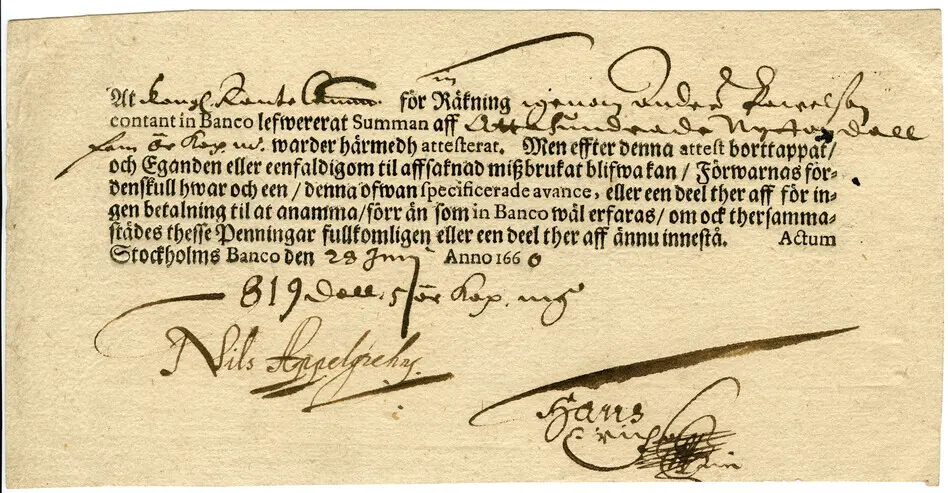 in
At Kongl. för Räkning igenom Anders Pawelson
contant in Banco lefwererat Summan aff Otta Hundrade Nyton Dall
fem ör Kop. m. warder härmedh attesterat. Men effter denna attest borttappat/
och Eganden eller eenfaldigom til affsaknad mißbrukat blifwa kan / Förwarnas för-
denskull hwar och een / denna ofwan specificerade avance, eller een deel ther aff för in-
gen betalning til at anamma/förr än som in Banco wäl erfaras/ om ock thersamma-
städes thesse Penningar fullkomligen eller een deel ther aff ännu innestå. Actum
Stockholms Banco den 28 Junij Anno 1660
819 Dall. 5 ör Kop. mt
Nils
Hans
Erich